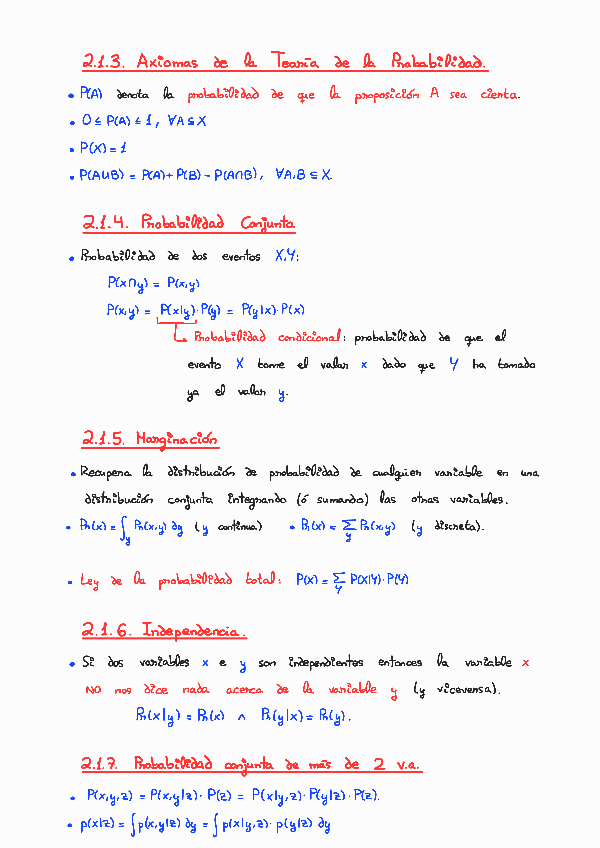 2.1.3. Axiomas de la Teoría de la Probabilidad.
• P(A) denota la probabilidad de que la proposición A sea cierta.
• 0 ≤ P(A) ≤ 1, ∀A ⊆ X
• P(X) = 1
• P(A∪B) = P(A) + P(B) - P(A∩B), ∀A,B ⊆ X.
2.1.4. Probabilidad Conjunta
• Probabilidad de dos eventos X,Y:
P(x∩y) = P(x,y)
P(x,y) = P(x|y)·P(y) = P(y|x)·P(x)
Probabilidad condicional: probabilidad de que el
evento X tome el valor x dado que Y ha tomado
ya el valor y.
2.1.5. Marginación
• Recupera la distribución de probabilidad de cualquier variable en una
distribución conjunta integrando (ó sumando) las otras variables.
• Pr(x) = ∫_y Pr(x,y) dy (y continua) • Pr(x) = Σ_y Pr(x,y) (y discreta).
• Ley de la probabilidad total: P(X) = Σ_Y P(X|Y)·P(Y)
2.1.6. Independencia.
• Si dos variables x e y son independientes entonces la variable x
NO nos dice nada acerca de la variable y (y viceversa).
Pr(x|y) = Pr(x) ∧ Pr(y|x) = Pr(y).
2.1.7. Probabilidad conjunta de más de 2 v.a.
• P(x,y,z) = P(x,y|z)·P(z) = P(x|y,z)·P(y|z)·P(z).
• p(x|z) = ∫p(x,y|z) dy = ∫p(x|y,z)·p(y|z) dy